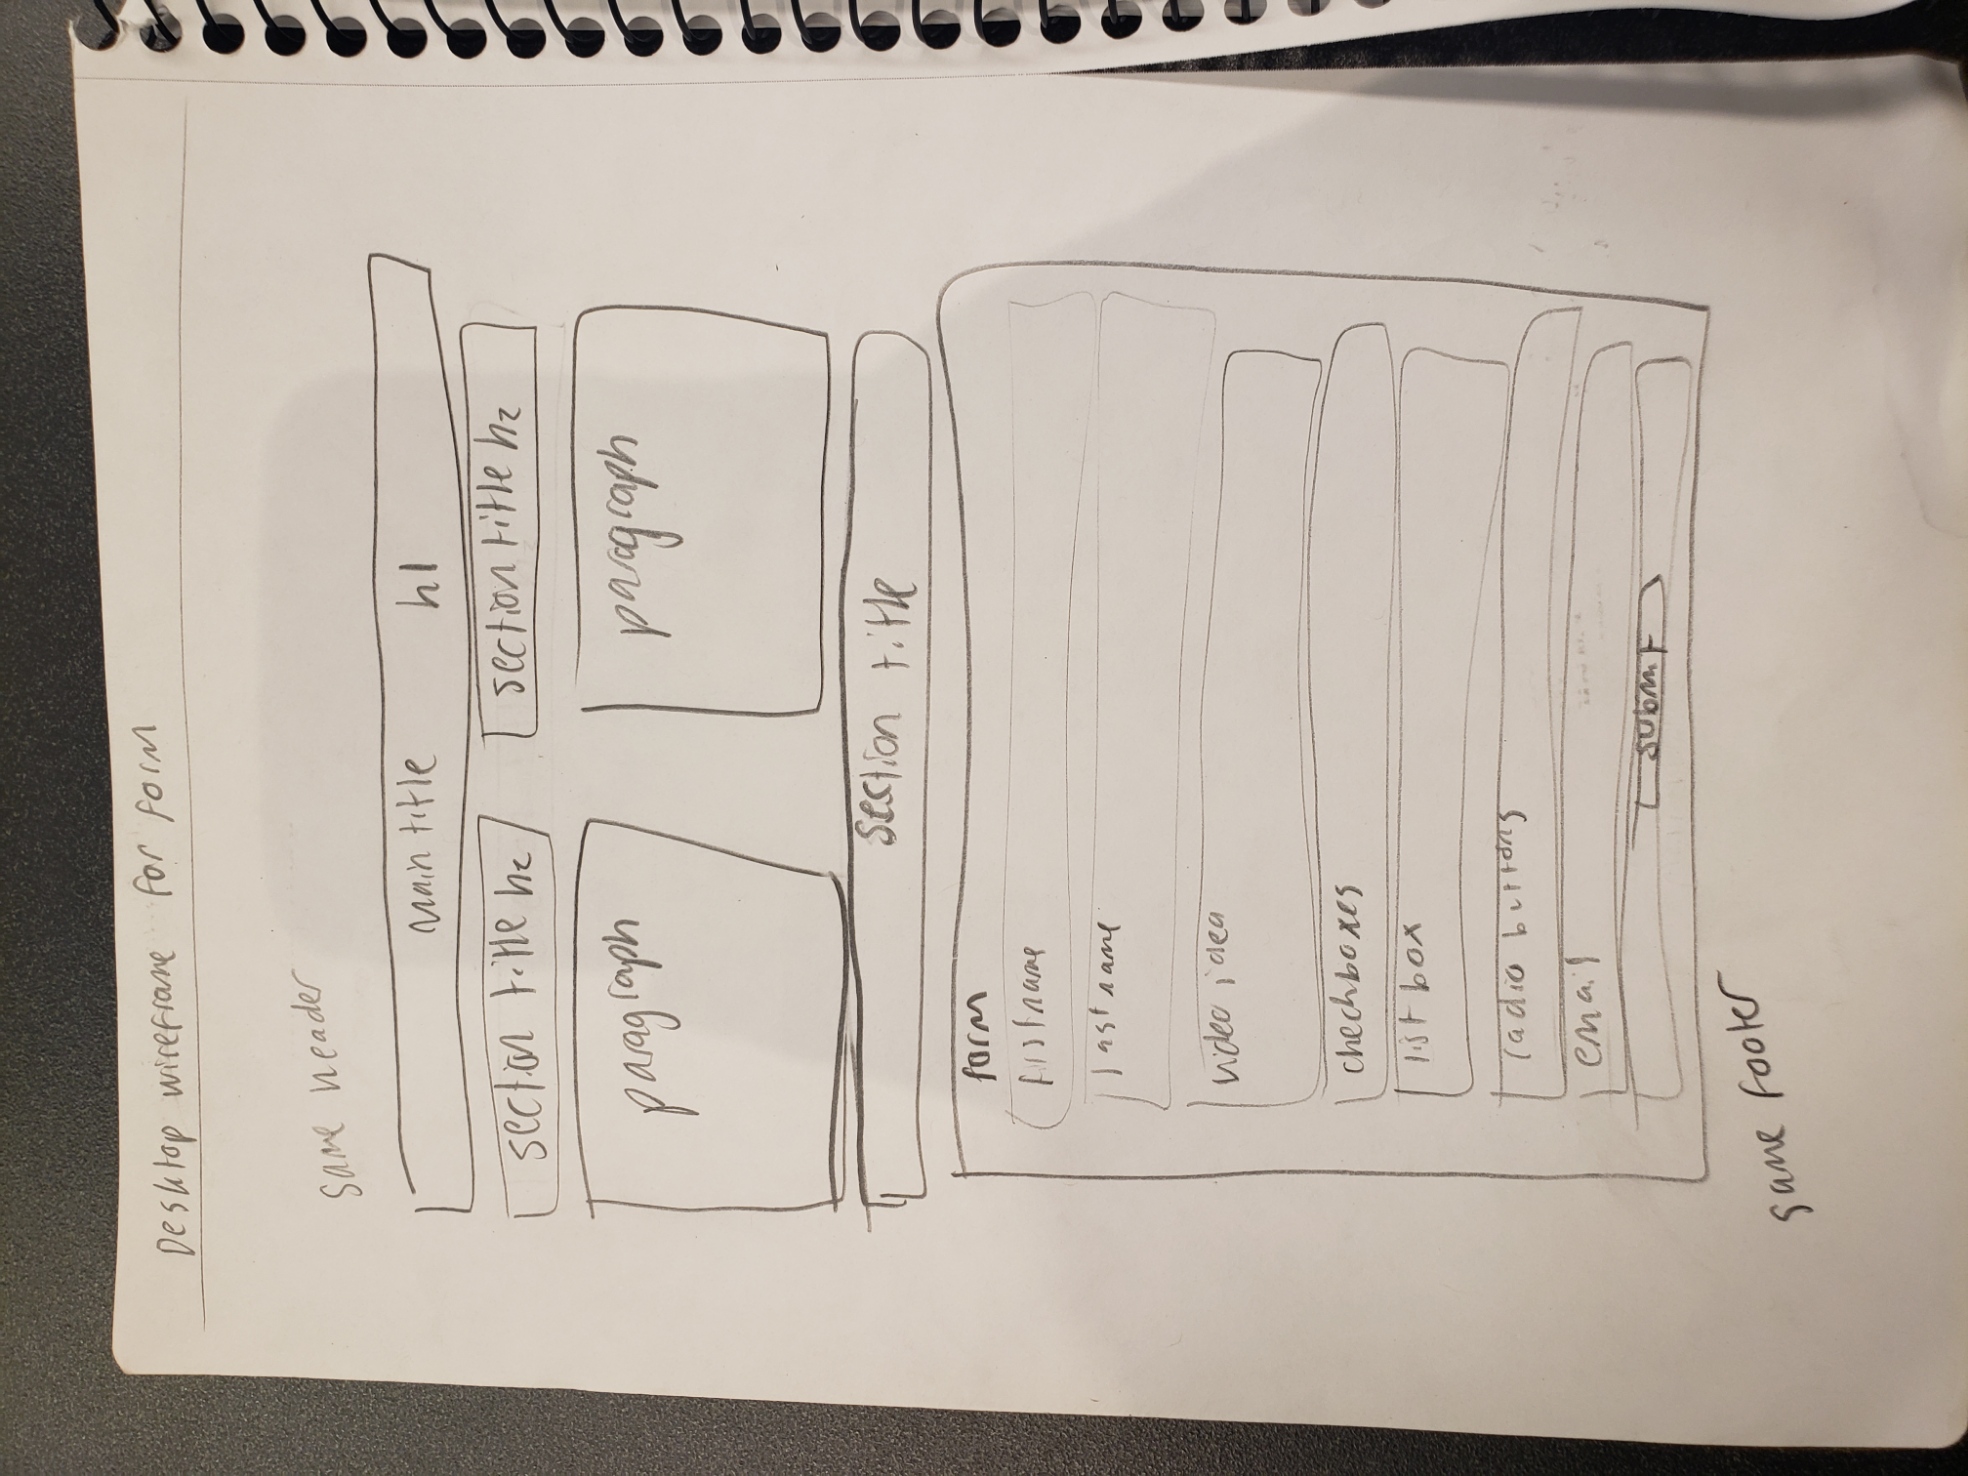 Desktop wireframe for form
same header
main title h1
section title h2 section title h2
paragraph paragraph
section title
form
firstname
lastname
video idea
checkboxes
list box
radio buttons
email
submit
same footer